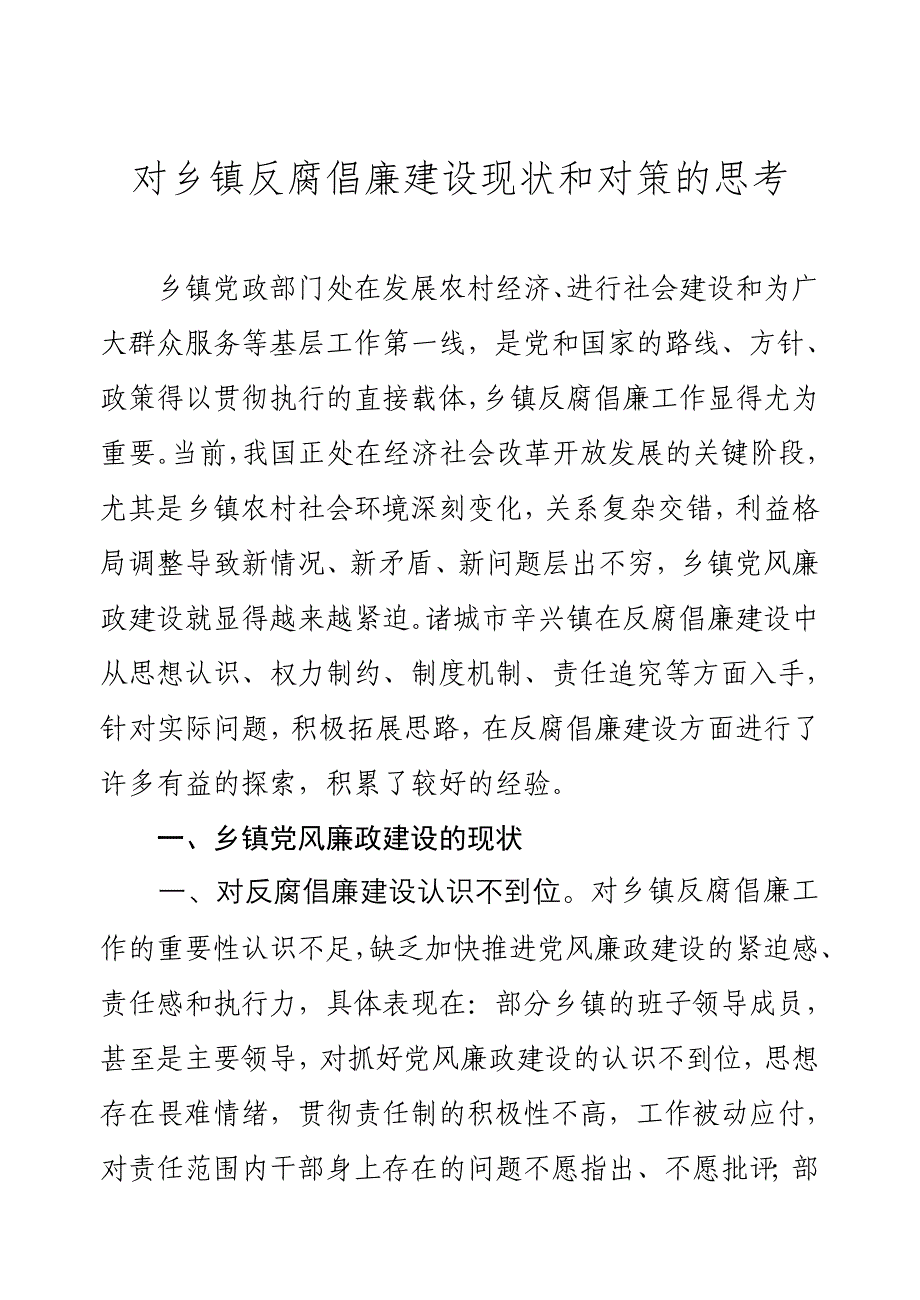 对乡镇反腐倡廉建设现状和对策的思考
乡镇党政部门处在发展农村经济、进行社会建设和为广
大群众服务等基层工作第一线，是党和国家的路线、方针、
政策得以贯彻执行的直接载体，乡镇反腐倡廉工作显得尤为
重要。当前，我国正处在经济社会改革开放发展的关键阶段，
尤其是乡镇农村社会环境深刻变化，关系复杂交错，利益格
局调整导致新情况、新矛盾、新问题层出不穷，乡镇党风廉
政建设就显得越来越紧迫。诸城市辛兴镇在反腐倡廉建设中
从思想认识、权力制约、制度机制、责任追究等方面入手，
针对实际问题，积极拓展思路，在反腐倡廉建设方面进行了
许多有益的探索，积累了较好的经验。
一、乡镇党风廉政建设的现状
一、对反腐倡廉建设认识不到位。对乡镇反腐倡廉工
作的重要性认识不足，缺乏加快推进党风廉政建设的紧迫感、
责任感和执行力，具体表现在：部分乡镇的班子领导成员，
甚至是主要领导，对抓好党风廉政建设的认识不到位，思想
存在畏难情绪，贯彻责任制的积极性不高，工作被动应付，
对责任范围内干部身上存在的问题不愿指出、不愿批评；部